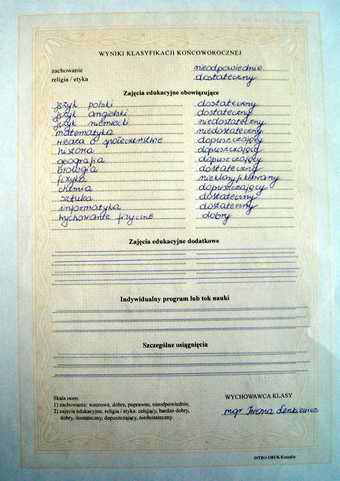 WYNIKI KLASYFIKACJI KOŃCOWOROCZNEJ
zachowanie nieodpowiednie
religia / etyka dostateczny
Zajęcia edukacyjne obowiązujące
język polski dostateczny
język angielski dostateczny
język niemiecki niedostateczny
matematyka niedostateczny
wiedza o społeczeństwie dopuszczający
historia dopuszczający
geografia dopuszczający
biologia dostateczny
fizyka nieklasyfikowany
chemia dopuszczający
sztuka dostateczny
informatyka dostateczny
wychowanie fizyczne dobry
Zajęcia edukacyjne dodatkowe
Indywidualny program lub tok nauki
Szczególne osiągnięcia
Skala ocen:
1) zachowania: wzorowe, dobre, poprawne, nieodpowiednie,
2) zajęcia edukacyjne, religia / etyka: celujący, bardzo dobry,
dobry, dostateczny, dopuszczający, niedostateczny.
WYCHOWAWCA KLASY
mgr Iwona